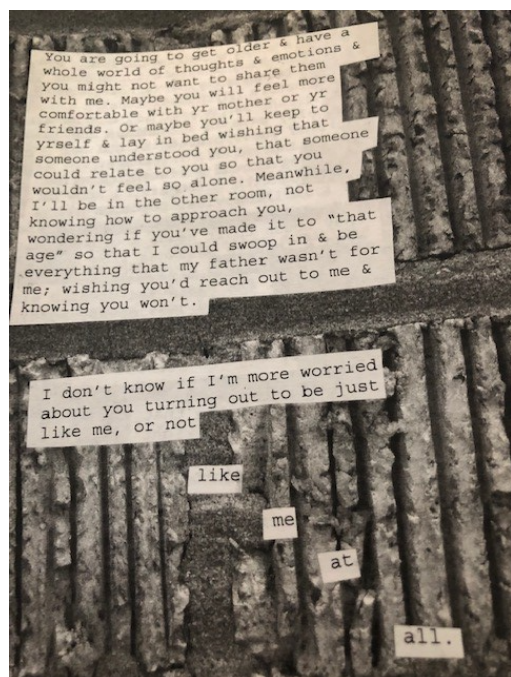 You are going to get older & have a
whole world of thoughts & emotions &
you might not want to share them
with me. Maybe you will feel more
comfortable with yr mother or yr
friends. Or maybe you'll keep to
yrself & lay in bed wishing that
someone understood you, that someone
could relate to you so that you
wouldn't feel so alone. Meanwhile,
I'll be in the other room, not
knowing how to approach you,
wondering if you've made it to "that
age" so that I could swoop in & be
everything that my father wasn't for
me; wishing you'd reach out to me &
knowing you won't.
I don't know if I'm more worried
about you turning out to be just
like me, or not
like
me
at
all.